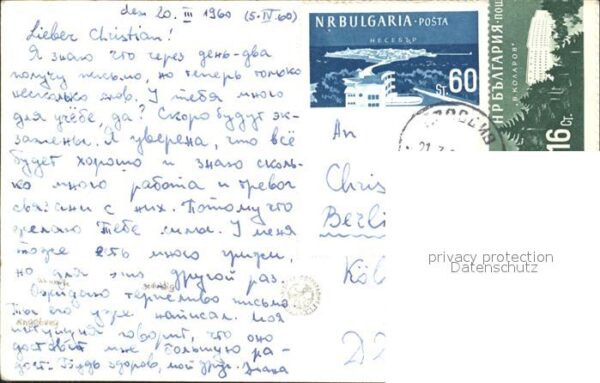 den 20. III 1960 (5.IV.60)
Lieber Christian!
Я знаю что через день-два
получу письмо, но теперь только
несколько слов. У тебя много
для учебе, да? Скоро будут эк-
замены. Я уверена, что всё
будет хорошо и знаю сколь-
ко много работа и тревог
связани с них. Потому что
желаю тебе силы. У меня
тоже есть много грижи,
но для это другой раз.
Ожидаю терпеливо письмо
Ты его уже написал. Моя
интуиция говорит, что оно
доставит мне большую ра-
дост. Будь здоров, мой друг.
NRBULGARIA-POŠTA
НЕСЕБЪР
St. 60
НРБЪЛГАРИЯ-ПОЩ
"В. КОЛАРОВ"
16 Ст.
ПЛОВДИВ
An
Chris
Berli
Köl
privacy protection
Datenschutz